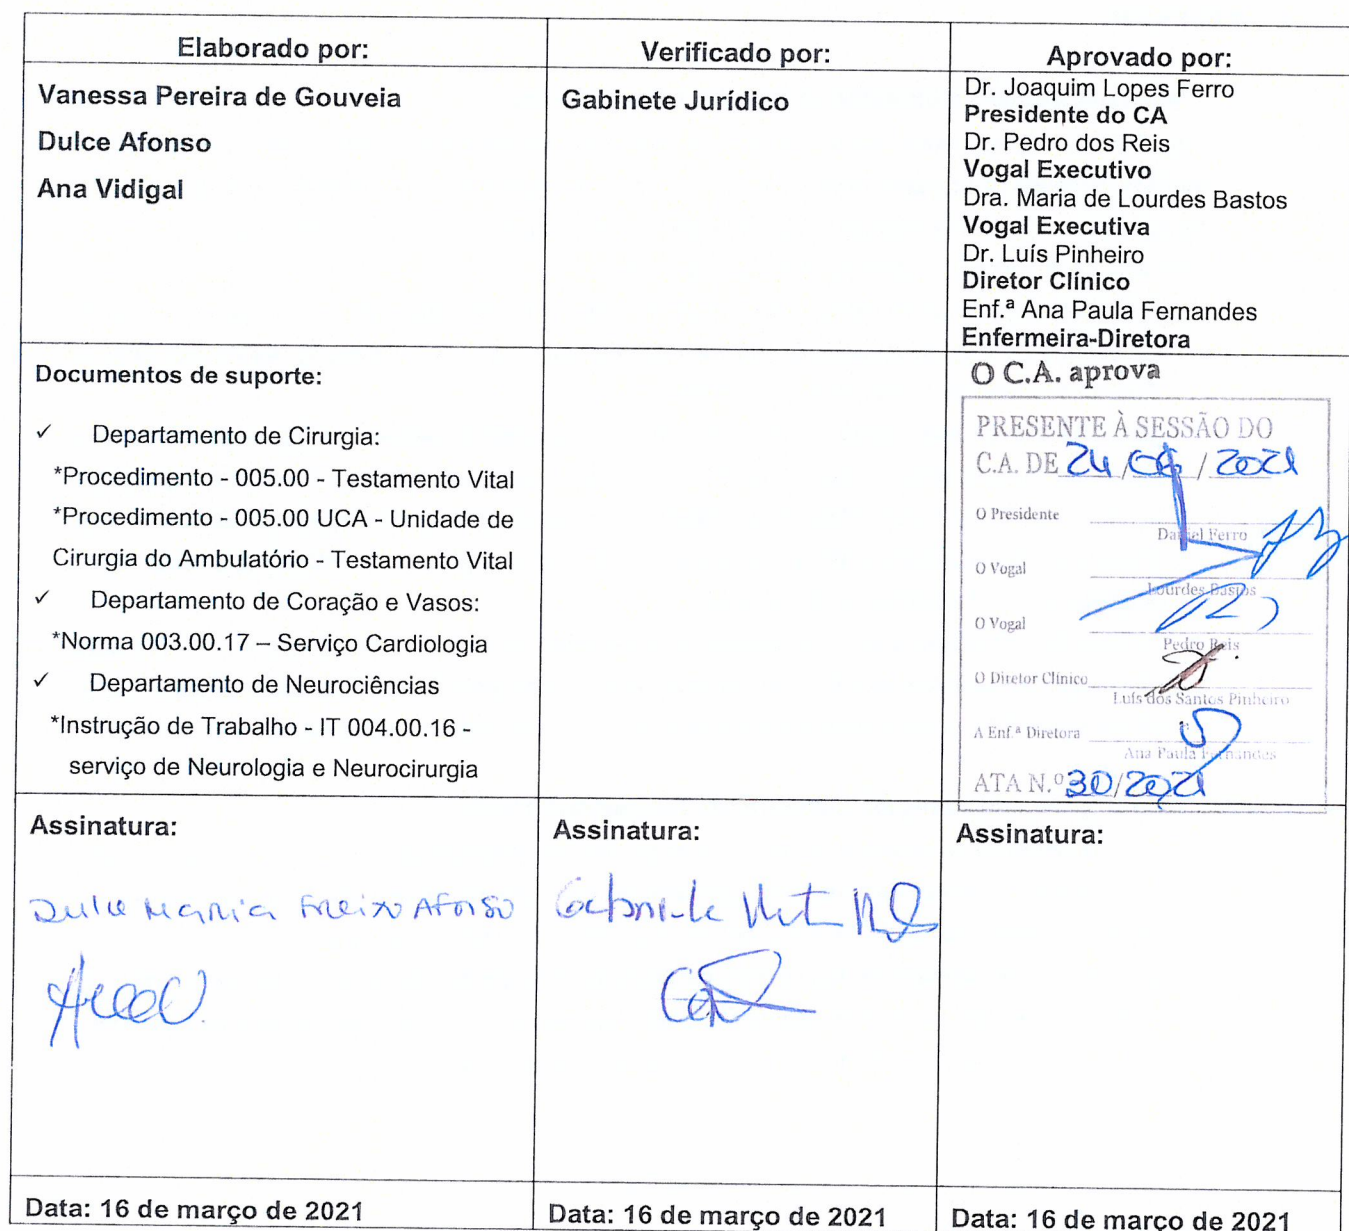 Elaborado por:
Verificado por:
Aprovado por:
Vanessa Pereira de Gouveia
Dulce Afonso
Ana Vidigal
Gabinete Jurídico
Dr. Joaquim Lopes Ferro
Presidente do CA
Dr. Pedro dos Reis
Vogal Executivo
Dra. Maria de Lourdes Bastos
Vogal Executiva
Dr. Luís Pinheiro
Diretor Clínico
Enf.ª Ana Paula Fernandes
Enfermeira-Diretora
Documentos de suporte:
✓ Departamento de Cirurgia:
*Procedimento - 005.00 - Testamento Vital
*Procedimento - 005.00 UCA - Unidade de
Cirurgia do Ambulatório - Testamento Vital
✓ Departamento de Coração e Vasos:
*Norma 003.00.17 – Serviço Cardiologia
✓ Departamento de Neurociências
*Instrução de Trabalho - IT 004.00.16 -
serviço de Neurologia e Neurocirurgia
O C.A. aprova
PRESENTE À SESSÃO DO
C.A. DE 24 / / 2021
O Presidente
Daniel Ferro
O Vogal
Lourdes Bastos
O Vogal
Pedro Reis
O Diretor Clínico
Luís dos Santos Pinheiro
A Enf.ª Diretora
Ana Paula Fernandes
ATA N.º 30/2021
Assinatura:
Dulce Maria Freixo Afonso
Assinatura:
Assinatura:
Data: 16 de março de 2021
Data: 16 de março de 2021
Data: 16 de março de 2021